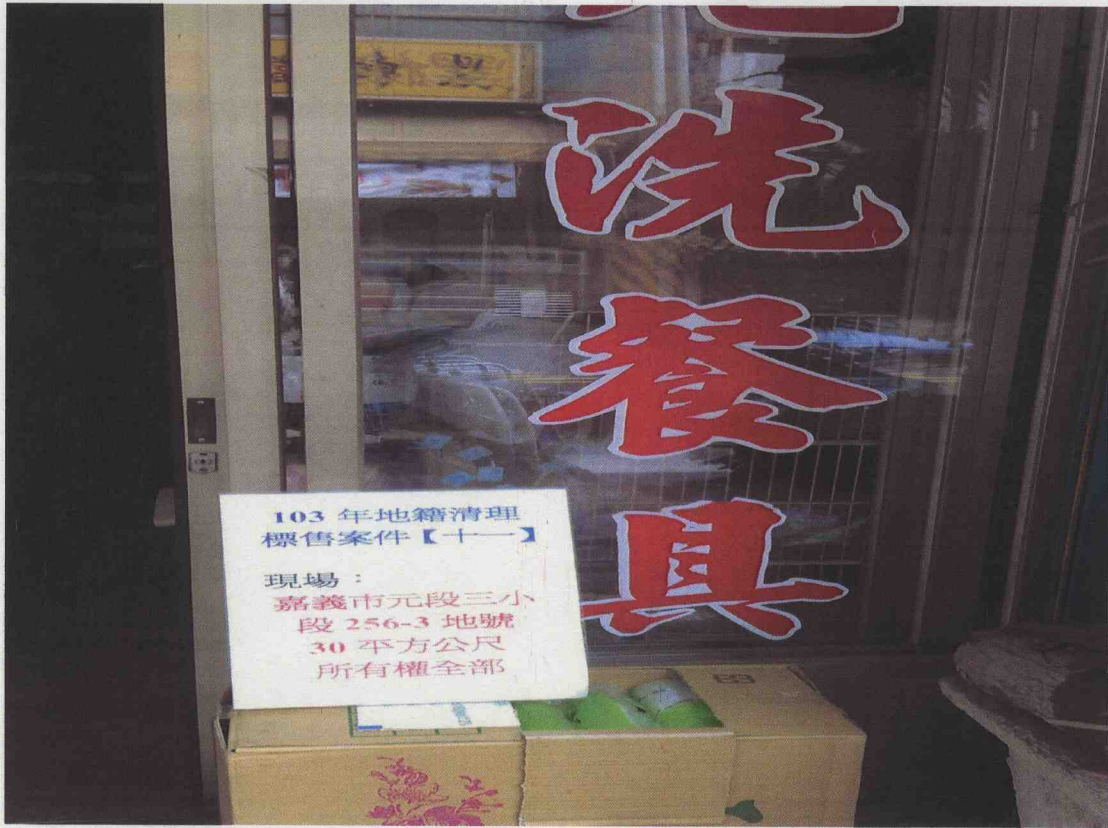 洗
餐
具
103 年地籍清理
標售案件【十一】
現場：
嘉義市元段三小
段 256-3 地號
30 平方公尺
所有權全部